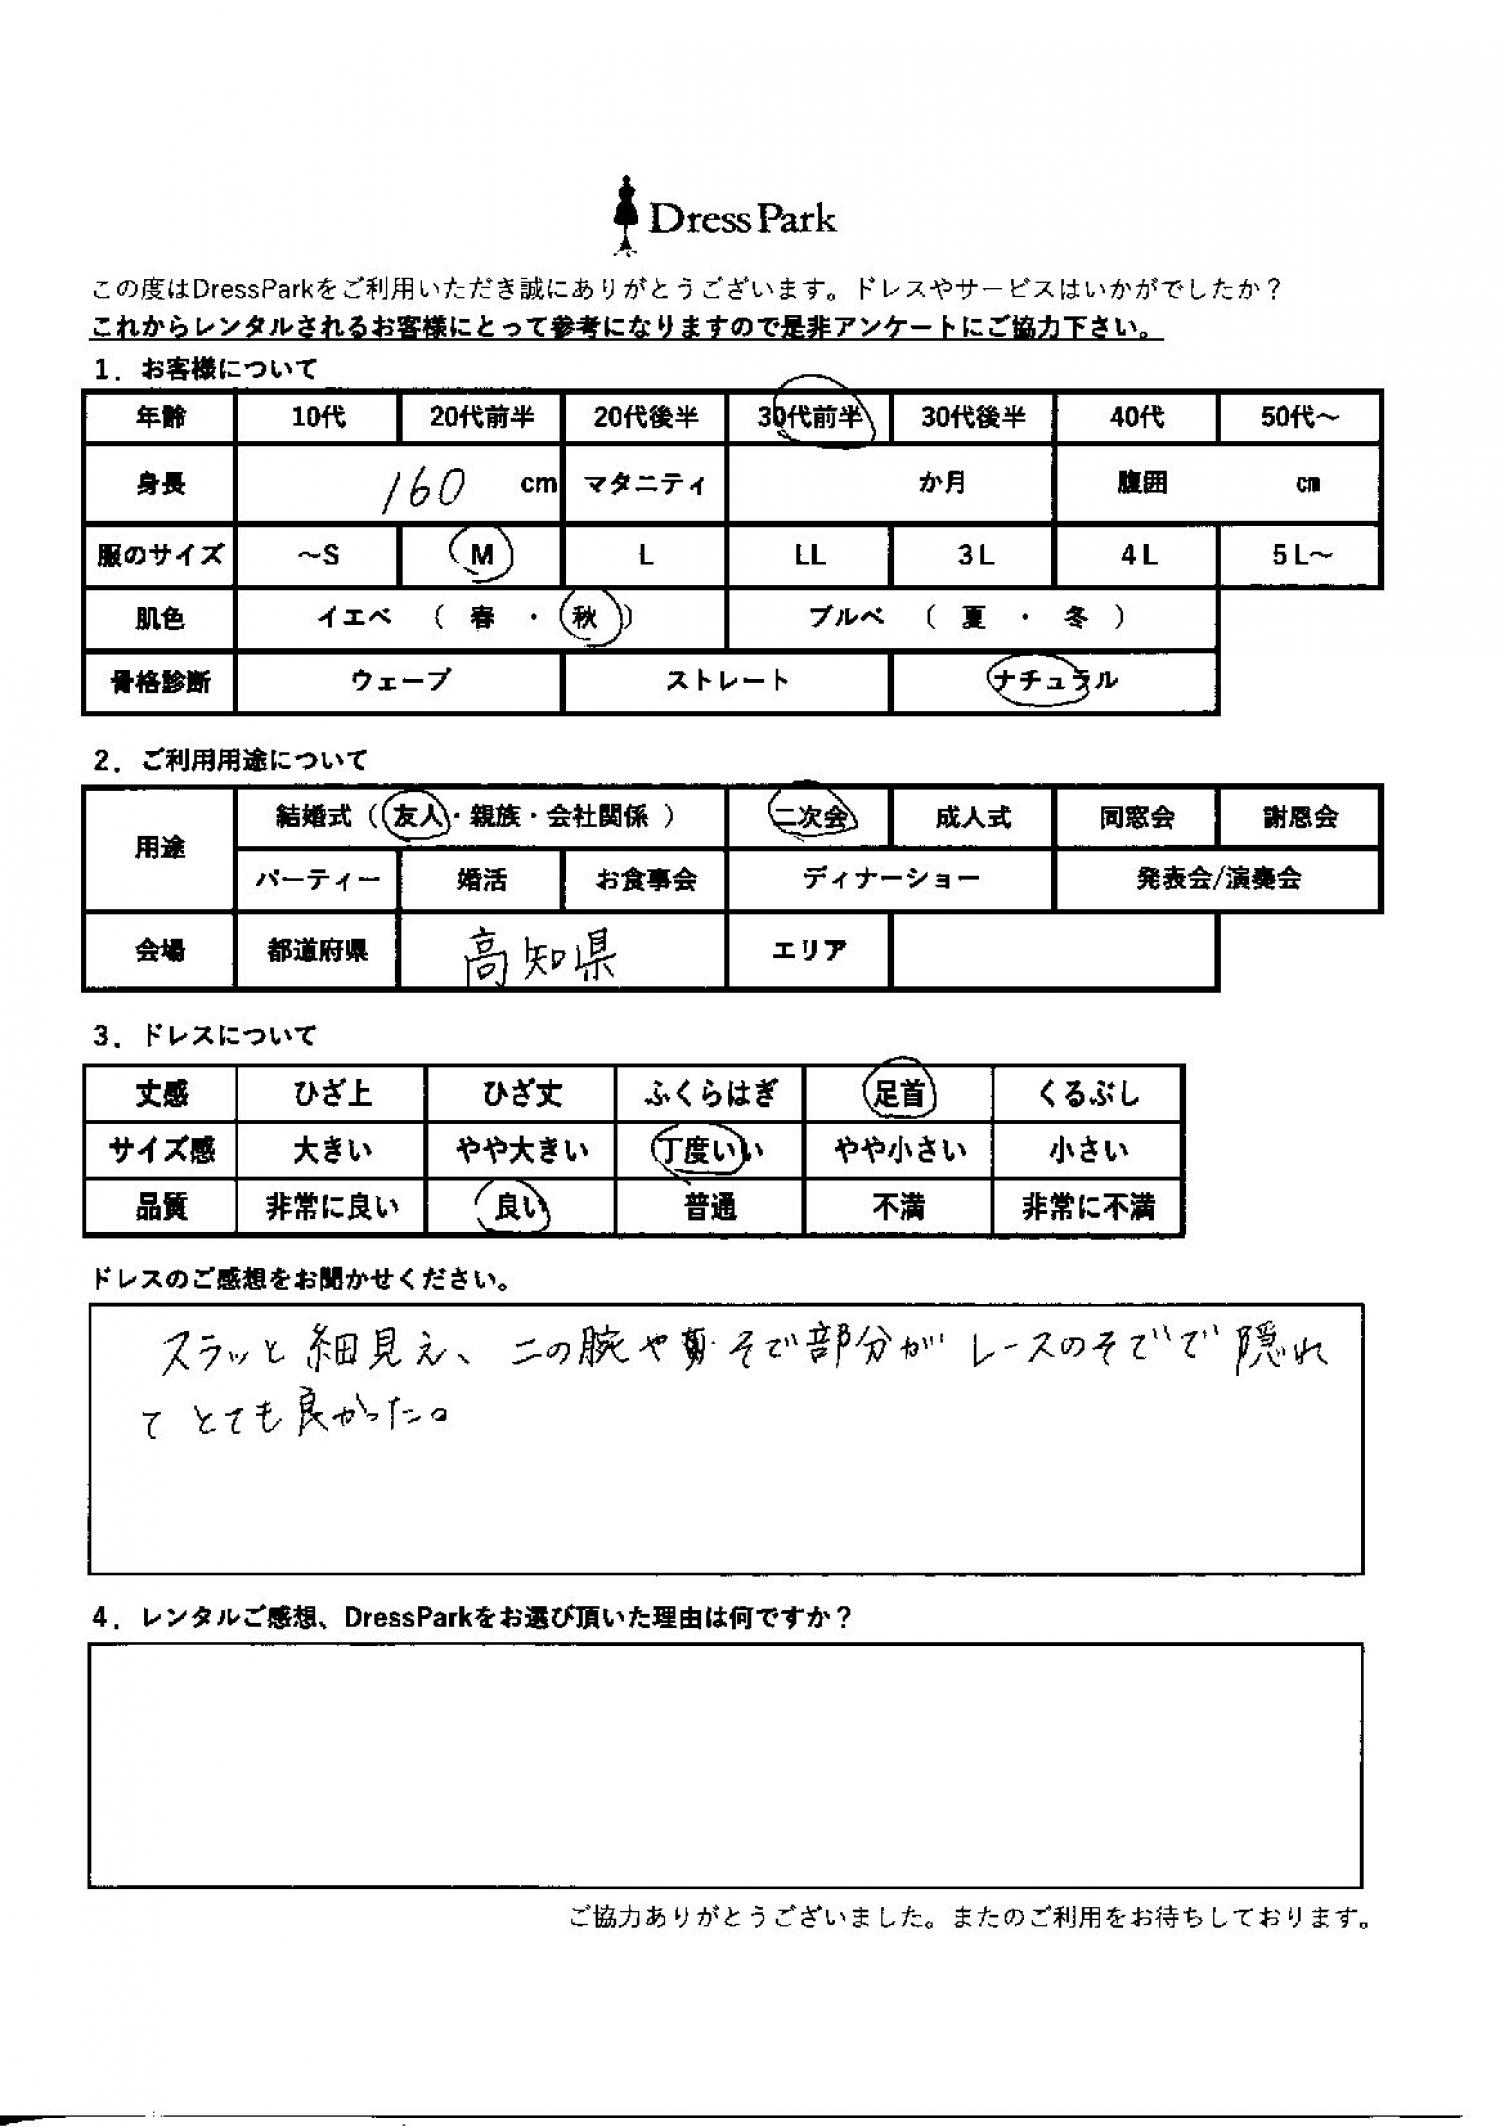 Dress Park
この度はDressParkをご利用いただき誠にありがとうございます。ドレスやサービスはいかがでしたか？
これからレンタルされるお客様にとって参考になりますので是非アンケートにご協力下さい。
1．お客様について
年齢 10代 20代前半 20代後半 30代前半 30代後半 40代 50代～
身長 160 cm マタニティ か月 腹囲 cm
服のサイズ ～S M L LL 3L 4L 5L～
肌色 イエベ （ 春 ・ 秋 ） ブルベ （ 夏 ・ 冬 ）
骨格診断 ウェーブ ストレート ナチュラル
2．ご利用用途について
用途 結婚式（ 友人・親族・会社関係 ） 二次会 成人式 同窓会 謝恩会
パーティー 婚活 お食事会 ディナーショー 発表会/演奏会
会場 都道府県 高知県 エリア
3．ドレスについて
丈感 ひざ上 ひざ丈 ふくらはぎ 足首 くるぶし
サイズ感 大きい やや大きい 丁度いい やや小さい 小さい
品質 非常に良い 良い 普通 不満 非常に不満
ドレスのご感想をお聞かせください。
スラッと細見え、二の腕や そで部分が レースのそでで隠れ
て とても良かった。
4．レンタルご感想、DressParkをお選び頂いた理由は何ですか？
ご協力ありがとうございました。またのご利用をお待ちしております。